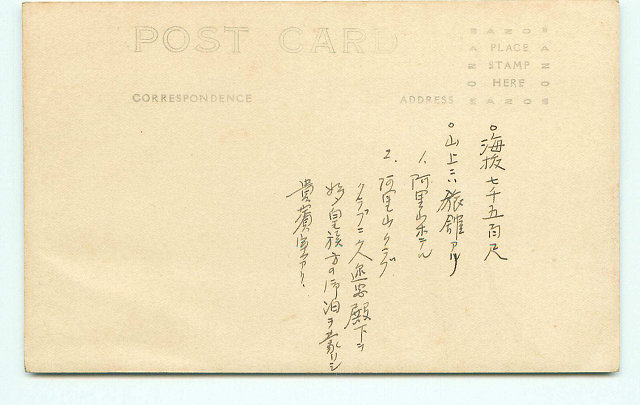 POST CARD
AZO
PLACE
STAMP
HERE
CORRESPONDENCE
ADDRESS
○海抜七千五百尺
○山上ニハ旅館アリ
1. 阿里山ホテル
2. 阿里山クラブ
クラブニハ久邇宮殿下ヲ
始メ皇族方の御泊ヲ蒙リシ
貴賓室アリ.